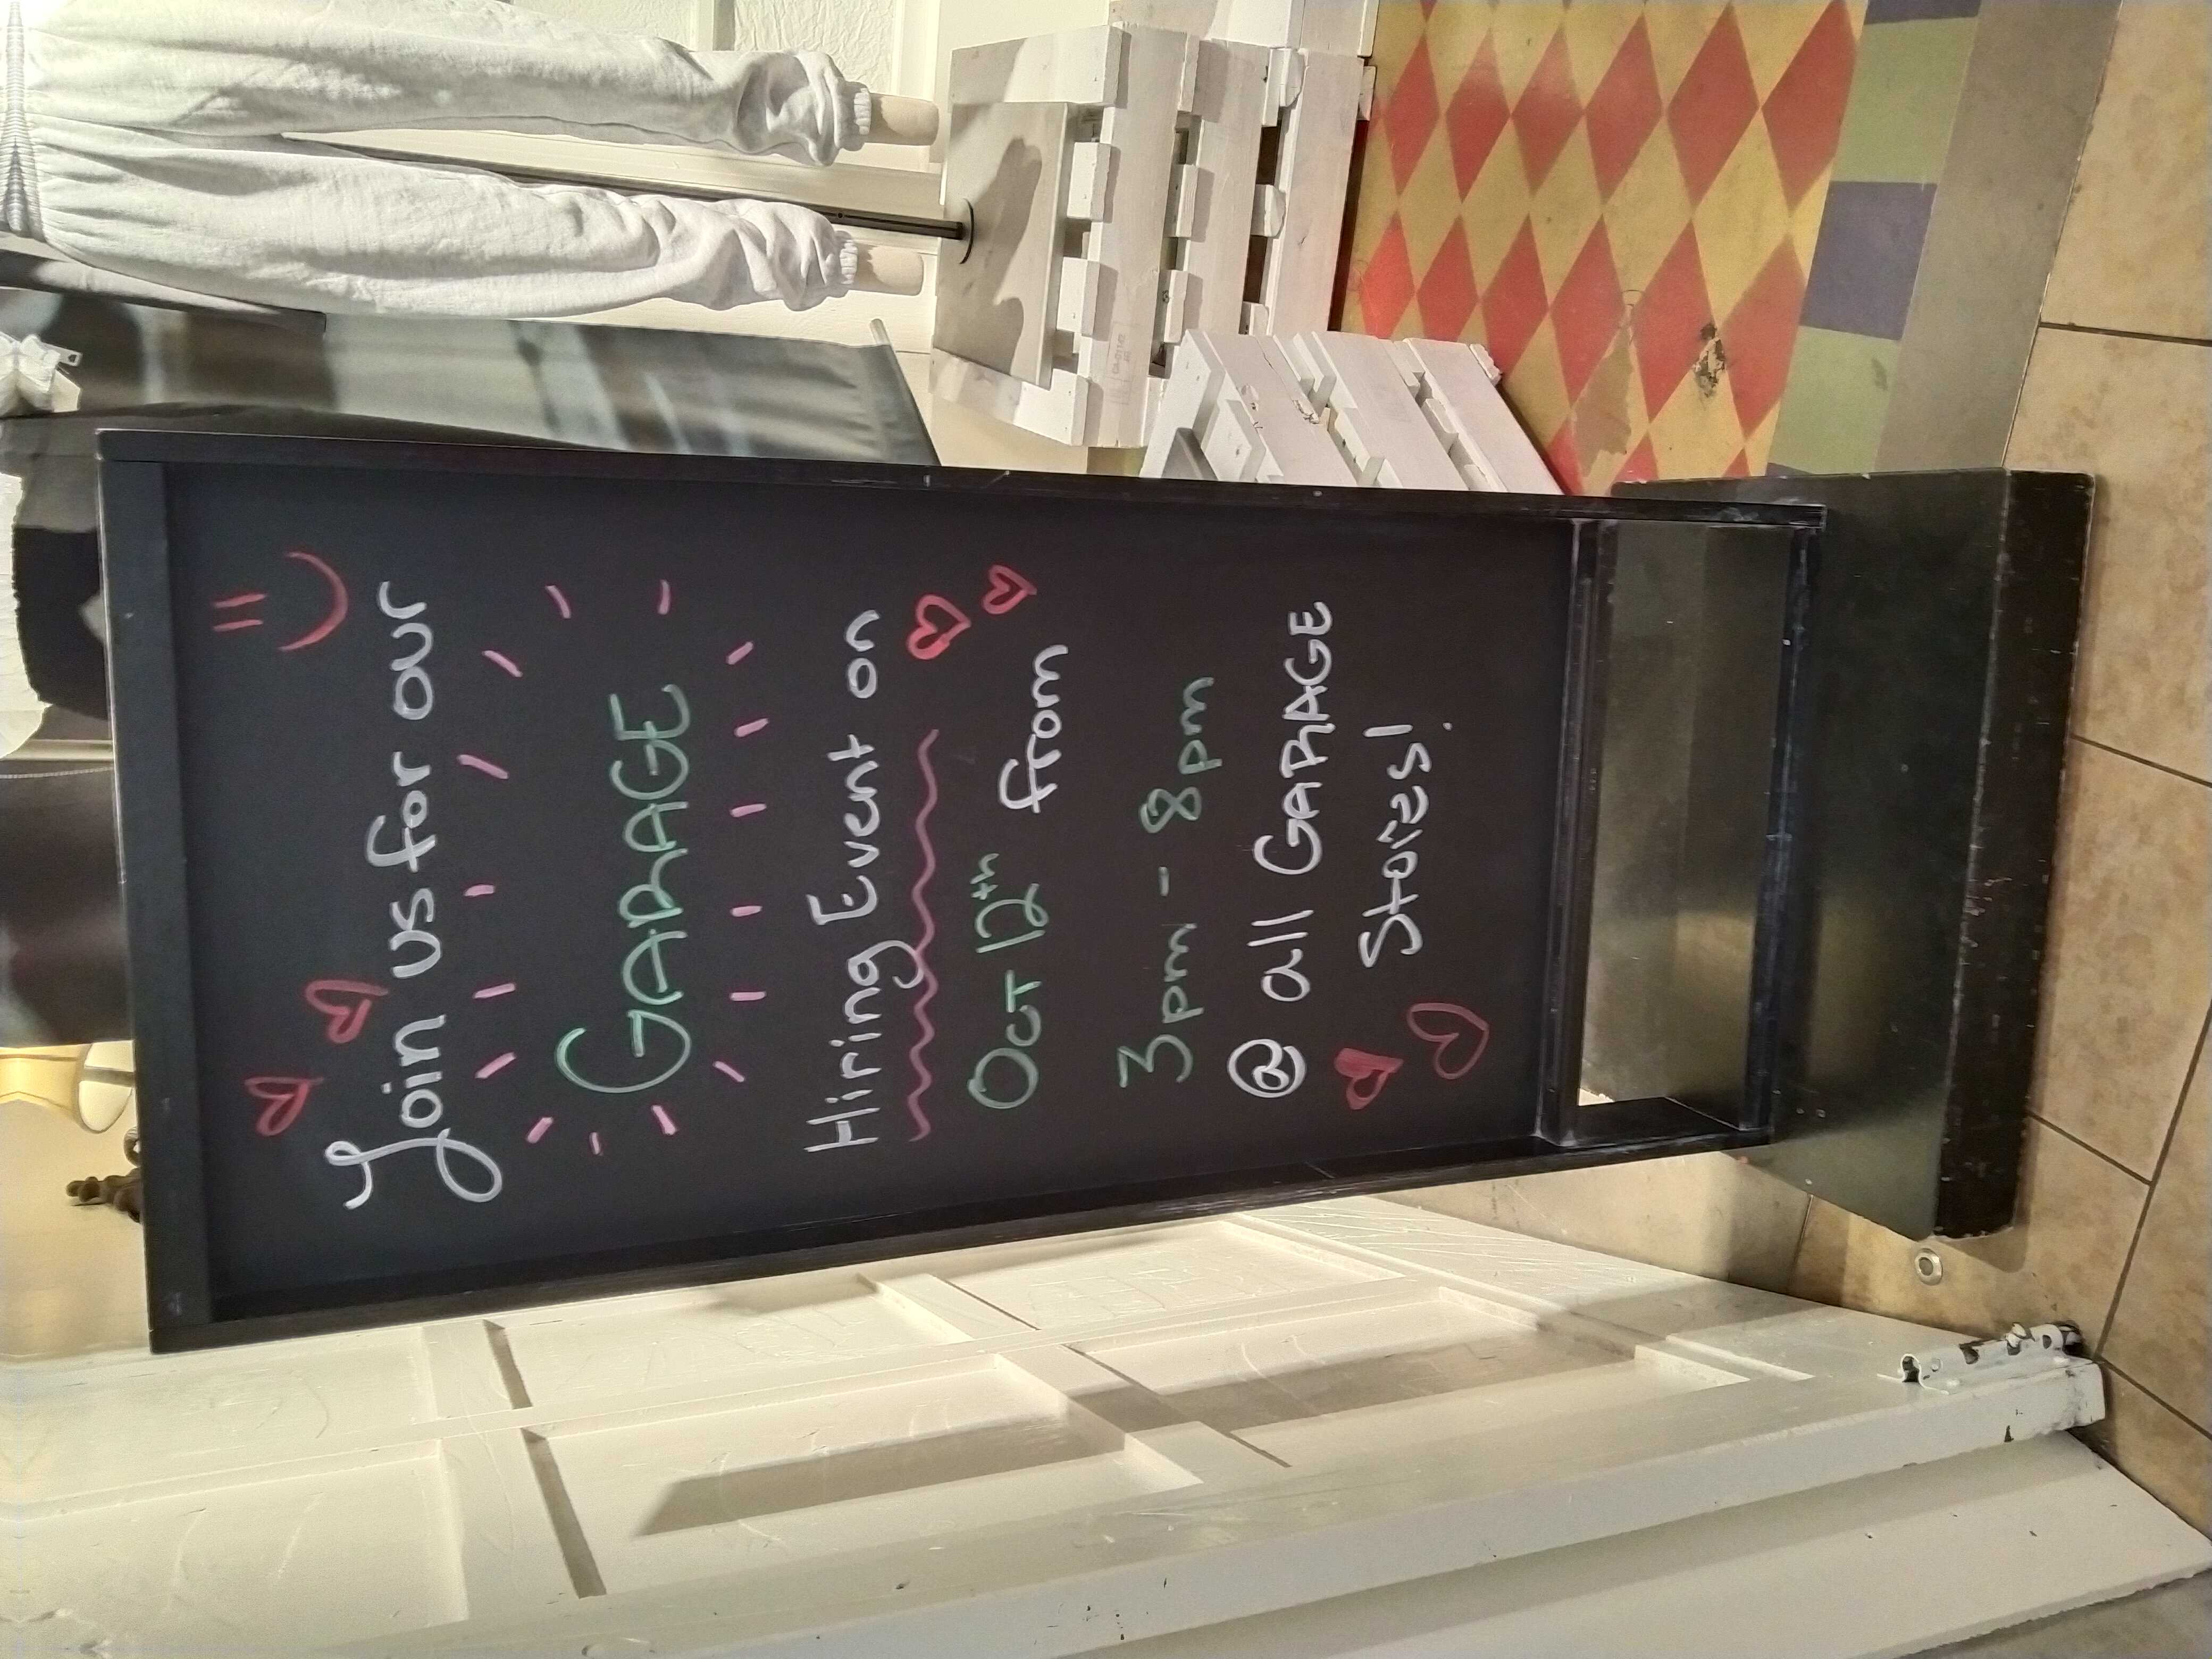 Join us for our
GARAGE
Hiring Event on
Oct 12th from
3pm - 8pm
@ all GARAGE
Stores!